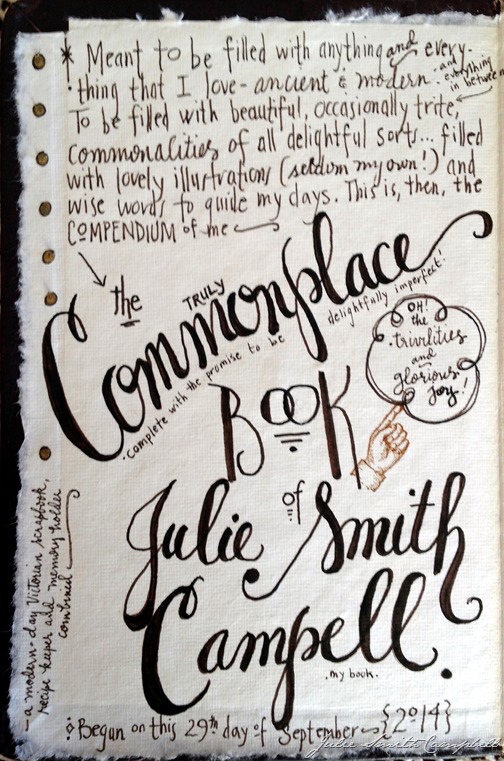 * Meant to be filled with anything and every-
thing that I love - ancient & modern - and everything in between
To be filled with beautiful, occasionally trite,
commonalities of all delightful sorts... filled
with lovely illustrations (seldom my own!) and
wise words to guide my days. This is, then, the
COMPENDIUM of me
the
TRULY
Commonplace
·complete with the promise to be delightfully imperfect!·
OH!
the
trivilities
and
glorious
joy!
BOOK
of
Julie Smith
Campell.
·my book·
-a modern-day Victorian scrapbook,
recipe keeper and memory holder
combined
Begun on this 29th day of September {2014}
Julie Smith Campbell